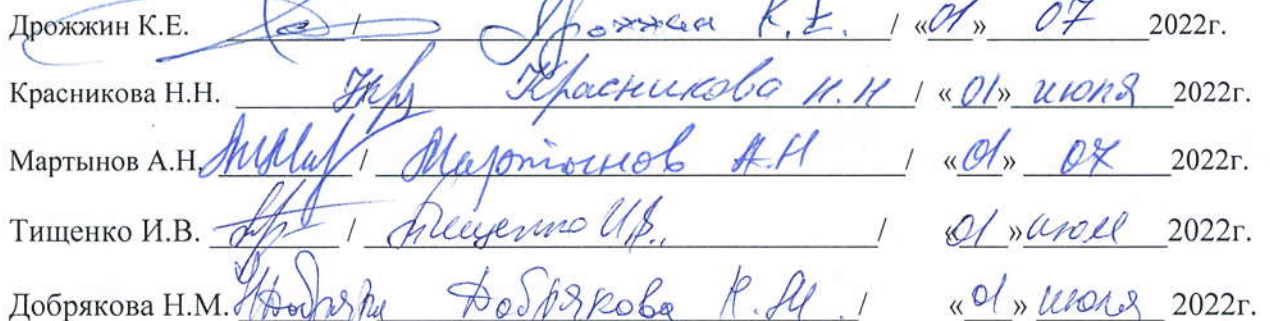 Дрожжин К.Е. / Дрожжин К.Е. / «01» 07 2022г.
Красникова Н.Н. Красникова Н.Н / «01» июля 2022г.
Мартынов А.Н. / Мартынов А.Н / «01» 07 2022г.
Тищенко И.В. / Тищенко И.В., / «01» июля 2022г.
Добрякова Н.М. Добрякова Н.М. / «01» июля 2022г.